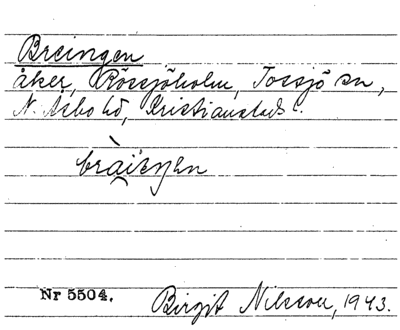 Breingen
åker, Rössjöholm, Tossjö sn,
N. Åsbo hd, Kristianstads l.
bràiŋen
Nr 5504.
Birgit Nilsson, 1943.